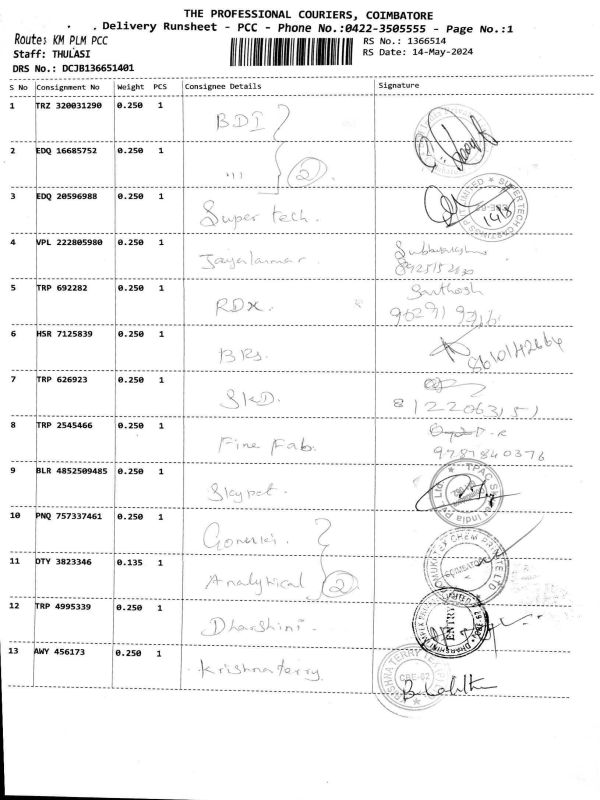 THE PROFESSIONAL COURIERS, COIMBATORE
Delivery Runsheet - PCC - Phone No.:0422-3505555 - Page No.:1
Route: KM PLM PCC
RS No.: 1366514
Staff: THULASI
RS Date: 14-May-2024
DRS No.: DCJB136651401
S No Consignment No Weight PCS Consignee Details Signature
1 TRZ 320031290 0.250 1 BDI
2 EDQ 16685752 0.250 1 ''' 2
3 EDQ 20596988 0.250 1 Super tech. 14/5
4 VPL 222805980 0.250 1
5 TRP 692282 0.250 1 RDX. Santhosh
6 HSR 7125839 0.250 1 BRs. 8610142664
7 TRP 626923 0.250 1 SKD. 8122063151
8 TRP 2545466 0.250 1 Fine Fab. 9787840376
9 BLR 4852509485 0.250 1 Skypet.
10 PNQ 757337461 0.250 1
11 DTY 3823346 0.135 1 Analytical 2
12 TRP 4995339 0.250 1 Dharshini ENTRY
13 AWY 456173 0.250 1 Krishnaterry CBE-02